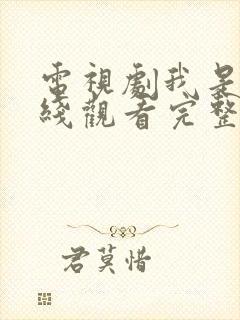 電視劇我是
綫觀看完整
君莫惜